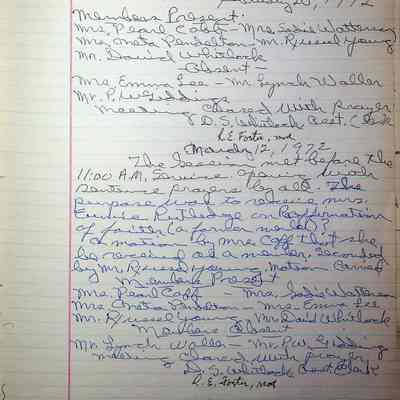 1972
Members Present.
Mrs. Pearl Cobb - Mrs. Sadie Watterson
Mrs. Meta Pendelton - Mr. Russel Young
Mr. David Whitlock
Absent -
Mrs. Emma Lee - Mr. Lynch Waller
Mr. P.W. Giddings
Meeting Closed with prayer
D.S. Whitlock Asst. Clerk
R.E. Foster, mod
March 12, 1972
The Session met before the
11:00 A.M. Service. Opening with
sentence prayers by all. The
purpose was to receive Mrs.
Eunice Rutledge on Reaffirmation
of faith (a former member)?
a motion by Mrs. Cobb that she
be received as a member, seconded
by Mr. Russel Young, Motion Carried
Members Present
Mrs. Pearl Cobb - Mrs. Sadie Watterson
Mrs. Meta - Mrs. Emma Lee
Mr. Russel Young - Mr. David Whitlock
Members Absent
Mr. Lynch Waller - Mr. P.W. Giddings
Meeting Closed with prayer
D.S. Whitlock Asst. Clerk
R.E. Foster, mod